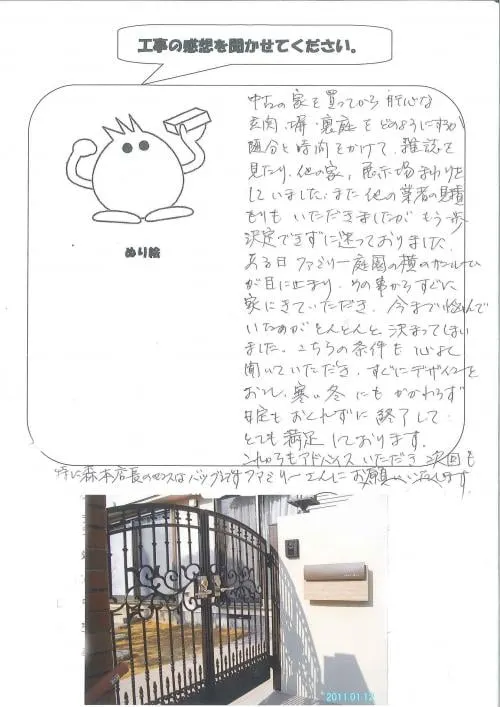 工事の感想を聞かせてください。
ぬり絵
中古の家を買ってから 肝心な
玄関、塀・裏庭 をどのようにするか
随分と時間をかけて、雑誌を
見たり、他の家、展示場まわりを
していました。また他の業者の見積
もりも いただきましたが もう一歩
決定できずに迷っておりました。
ある日 ファミリー庭園の横の
が目に止まり、その事からすぐに
家にきていただき、今まで悩んで
いたのがとんとんと 決まってしまい
ました。こちらの条件も 心よく
聞いていただき、すぐにデザインを
おこし、寒い冬にもかかわらず
予定もおくれずに 終了して
とても満足しております。
これからもアドバイスいただき 次回も
特に森本店長のセンスはバツグンです ファミリーさんにお願いいたします。
2011.01.12